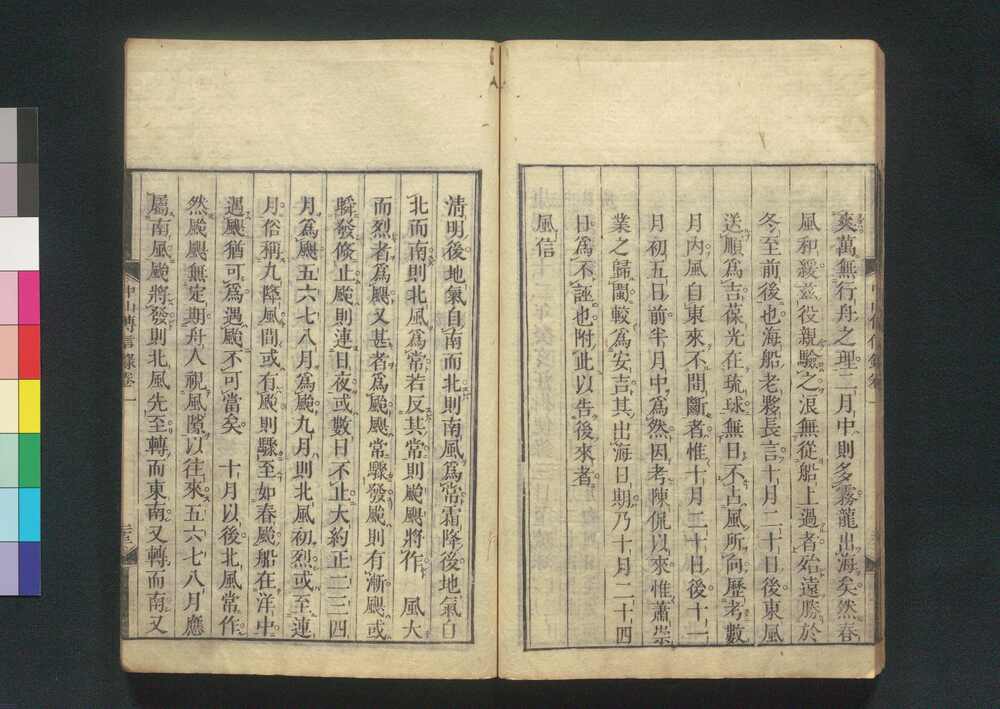 爽萬無行舟之理二月中則多霧龍出海矣然春
風和緩茲役親驗之浪無從船上過者殆遠勝於
冬至前後也海船老夥長言十月二十日後東風
送順爲吉葆光在琉球無日不占風所向歷考數
月內風自東來不間斷者惟十月二十日後十一
月初五日前半月中爲然因考陳侃以來惟蕭崇
業之歸閩較爲安吉其出海日期乃十月二十四
日爲不誣也附此以告後來者
風信
清明後地氣自南而北則南風爲常霜降後地氣自
北而南則北風爲常若反其常則颱颶將作　風大
而烈者爲颶又甚者爲颱颶常驟發颱則有漸颶或
瞬發倏止颱則連日夜或數日不止大約正二三四
月爲颶五六七八月爲颱九月則北風初烈或至連
月俗稱九降風間或有颱則驟至如春颶船在洋中
遇颶猶可爲遇颱不可當矣　十月以後北風常作
然颱颶無定期舟人視風隙以往來五六七八月應
屬南風颱將發則北風先至轉而東南又轉而南又
中山傳信錄卷一